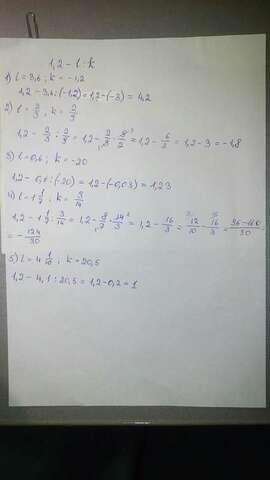 1,2 - l : k
1) l = 3,6; k = -1,2
1,2 - 3,6 : (-1,2) = 1,2 - (-3) = 4,2
2) l = 2/3; k = 2/9
1,2 - 2/3 : 2/9 = 1,2 - 2/3 · 9/2 = 1,2 - 6/2 = 1,2 - 3 = -1,8
3) l = 0,6; k = -20
1,2 - 0,6 : (-20) = 1,2 - (-0,03) = 1,23
4) l = 1 1/7; k = 3/14
1,2 - 1 1/7 : 3/14 = 1,2 - 8/7 · 14/3 = 1,2 - 16/3 = 12/10 - 16/3 = 36-160/30 =
= - 124/30
5) l = 4 1/10; k = 20,5
1,2 - 4,1 : 20,5 = 1,2 - 0,2 = 1